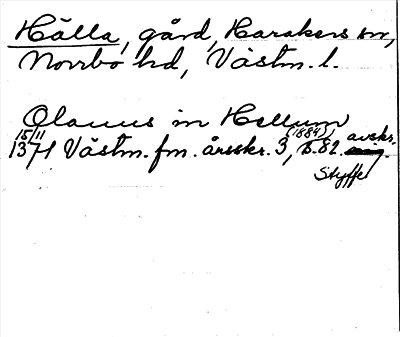 Hälla, gård, Harakers sn,
Norrbo hd, Västm. l.
Olauus in Hellum
15/11 1371 Västm. fm. årsskr. 3, (1884), s. 82. avskr.
Styffe